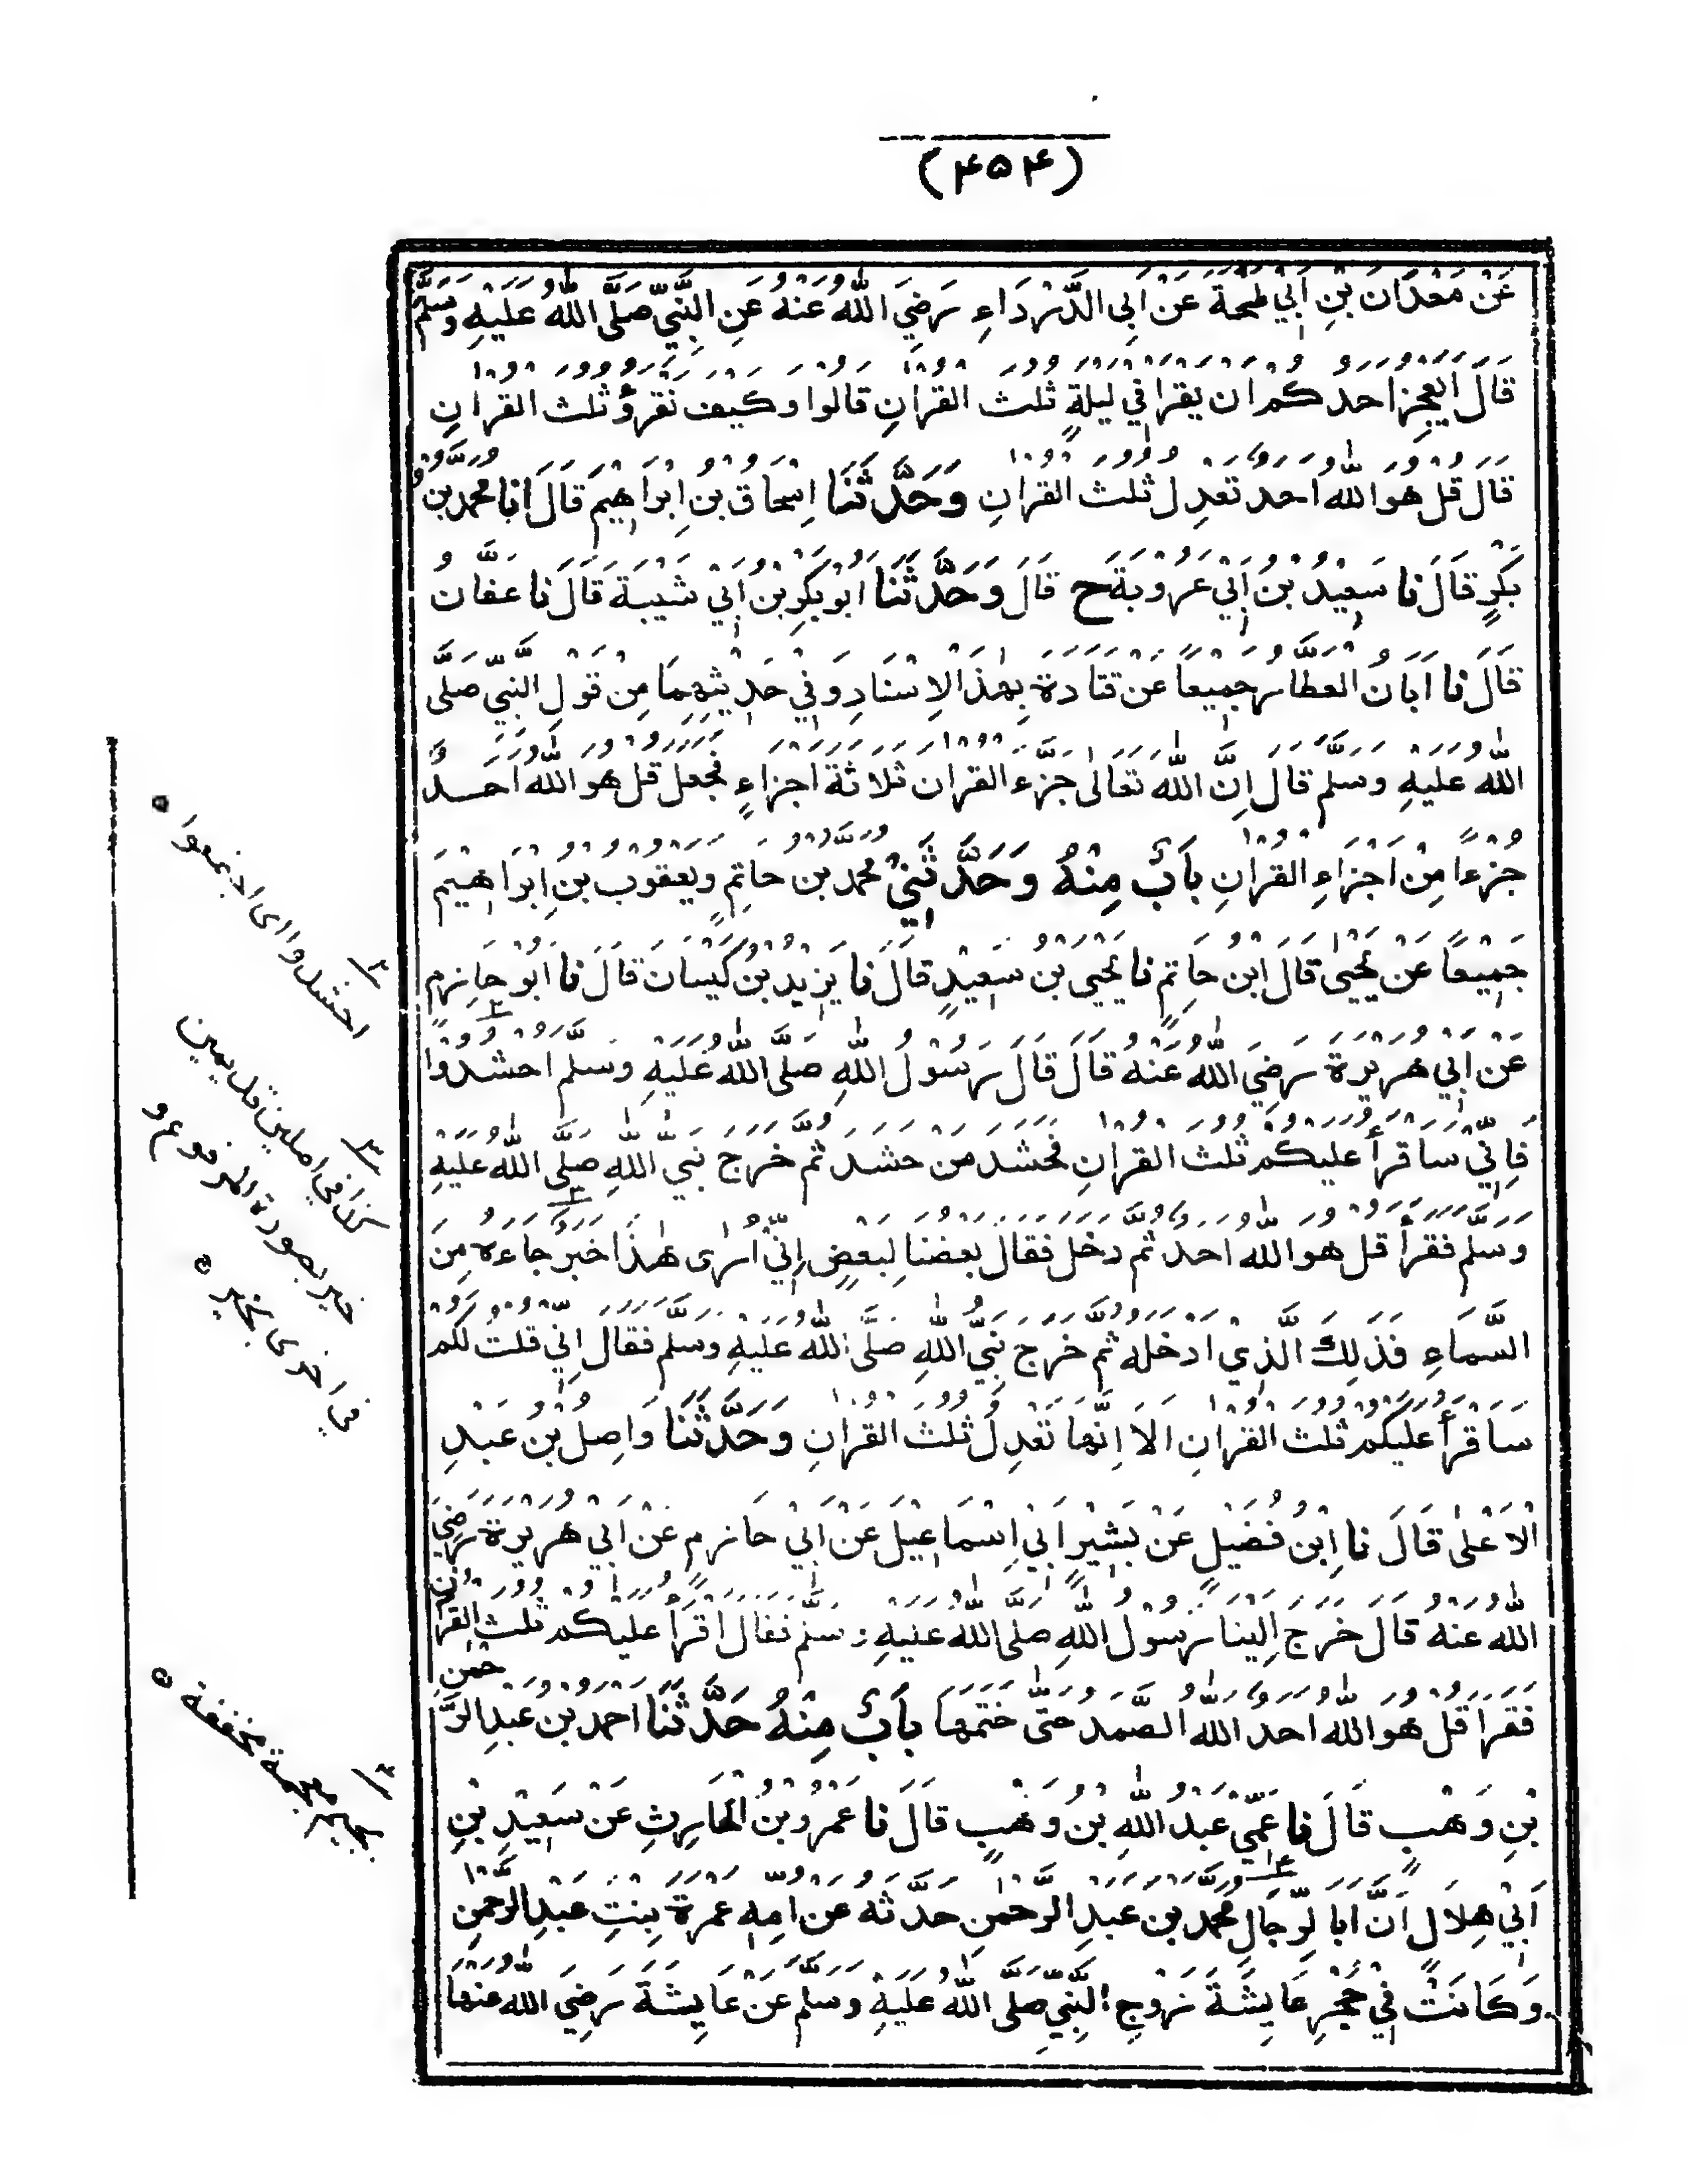 (۴۵۴)
عَنْ مَعْدَانَ بْنِ اَبِي طلحة عَنْ اَبِي الدَّرْدَاءِ رَضِيَ اللهُ عَنْهُ عَنِ النَّبِيِّ صَلَّى اللهُ عَلَيْهِ وَسَلَّمَ
قَالَ اَيَعْجِزُ اَحَدُكُمْ اَنْ يَقْرَاَ فِي لَيْلَةٍ ثُلُثَ الْقُرْاٰنِ قَالُوْا وَكَيْفَ نَقْرَؤُ ثُلُثَ الْقُرْاٰنِ
قَالَ قُلْ هُوَ اللهُ اَحَدٌ تَعْدِلُ ثُلُثَ الْقُرْاٰنِ وَحَدَّثَنَا اِسْحَاقُ بْنُ اِبْرَاهِيْمَ قَالَ اَنَا مُحَمَّدُ بْنُ
بَكْرٍ قَالَ نَا سَعِيْدُ بْنُ اَبِيْ عَرُوْبَةَ ح قَالَ وَحَدَّثَنَا اَبُوْ بَكْرِ بْنُ اَبِيْ شَيْبَةَ قَالَ نَا عَفَّانُ
قَالَ نَا اَبَانُ الْعَطَّارُ جَمِيْعًا عَنْ قَتَادَةَ بِهٰذَا الْاِسْنَادِ وَفِيْ حَدِيْثِهِمَا مِنْ قَوْلِ النَّبِيِّ صَلَّى
اللهُ عَلَيْهِ وَسَلَّمَ قَالَ اِنَّ اللهَ تَعَالٰى جَزَّءَ الْقُرْاٰنَ ثَلَاثَةَ اَجْزَاءٍ فَجَعَلَ قُلْ هُوَ اللهُ اَحَدٌ
جُزْءًا مِنْ اَجْزَاءِ الْقُرْاٰنِ بَابٌ مِنْهُ وَحَدَّثَنِيْ مُحَمَّدُ بْنُ حَاتِمٍ وَيَعْقُوْبُ بْنُ اِبْرَاهِيْمَ
جَمِيْعًا عَنْ يَحْيٰى قَالَ ابْنُ حَاتِمٍ نَا يَحْيَى بْنُ سَعِيْدٍ قَالَ نَا يَزِيْدُ بْنُ كَيْسَانَ قَالَ نَا اَبُوْ حَازِمٍ
عَنْ اَبِي هُرَيْرَةَ رَضِيَ اللهُ عَنْهُ قَالَ قَالَ رَسُوْلُ اللهِ صَلَّى اللهُ عَلَيْهِ وَسَلَّمَ احْشُدُوْا
فَاِنِّيْ سَاَقْرَأُ عَلَيْكُمْ ثُلُثَ الْقُرْاٰنِ فَحَشَدَ مَنْ حَشَدَ ثُمَّ خَرَجَ نَبِيُّ اللهِ صَلَّى اللهُ عَلَيْهِ
وَسَلَّمَ فَقَرَأَ قُلْ هُوَ اللهُ اَحَدٌ ثُمَّ دَخَلَ فَقَالَ بَعْضُنَا لِبَعْضٍ اِنِّيْ اُرٰى هٰذَا خَبَرٌ جَاءَهُ مِنَ
السَّمَاءِ فَذٰلِكَ الَّذِيْ اَدْخَلَهُ ثُمَّ خَرَجَ نَبِيُّ اللهِ صَلَّى اللهُ عَلَيْهِ وَسَلَّمَ فَقَالَ اِنِّيْ قُلْتُ لَكُمْ
سَاَقْرَأُ عَلَيْكُمْ ثُلُثَ الْقُرْاٰنِ اَلَا اِنَّهَا تَعْدِلُ ثُلُثَ الْقُرْاٰنِ وَحَدَّثَنَا وَاصِلُ بْنُ عَبْدِ
الْاَعْلٰى قَالَ نَا اِبْنُ فُضَيْلٍ عَنْ بَشِيْرٍ اَبِيْ اِسْمَاعِيْلَ عَنْ اَبِيْ حَازِمٍ عَنْ اَبِيْ هُرَيْرَةَ رَضِيَ
اللهُ عَنْهُ قَالَ خَرَجَ اِلَيْنَا رَسُوْلُ اللهِ صَلَّى اللهُ عَلَيْهِ وَسَلَّمَ فَقَالَ اَقْرَأُ عَلَيْكُمْ ثُلُثَ الْقُرْاٰنِ
فَقَرَاَ قُلْ هُوَ اللهُ اَحَدٌ اَللهُ الصَّمَدُ حَتّٰى خَتَمَهَا بَابٌ مِنْهُ حَدَّثَنَا اَحْمَدُ بْنُ عَبْدِ الرَّحْمٰنِ
بْنِ وَهْبٍ قَالَ نَا عَمِّيْ عَبْدُ اللهِ بْنُ وَهْبٍ قَالَ نَا عَمْرُو بْنُ الْحَارِثِ عَنْ سَعِيْدِ بْنِ
اَبِيْ هِلَالٍ اَنَّ اَبَا الرِّجَالِ مُحَمَّدَ بْنَ عَبْدِ الرَّحْمٰنِ حَدَّثَهُ عَنْ اُمِّهِ عَمْرَةَ بِنْتِ عَبْدِ الرَّحْمٰنِ
وَكَانَتْ فِيْ حَجْرِ عَايِشَةَ زَوْجِ النَّبِيِّ صَلَّى اللهُ عَلَيْهِ وَسَلَّمَ عَنْ عَايِشَةَ رَضِيَ اللهُ عَنْهَا
۲
احشدوا اى اجتمعوا
۳
كذا في اصلين قديمين
خبر بصورة المرفوع و
في اخرى بخبر
۴
بجيم معجمة مخففة